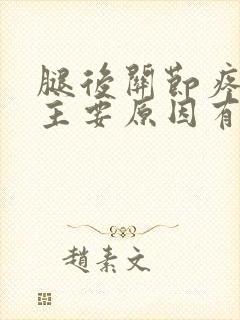 腿後關節疼
主要原因有
趙素文